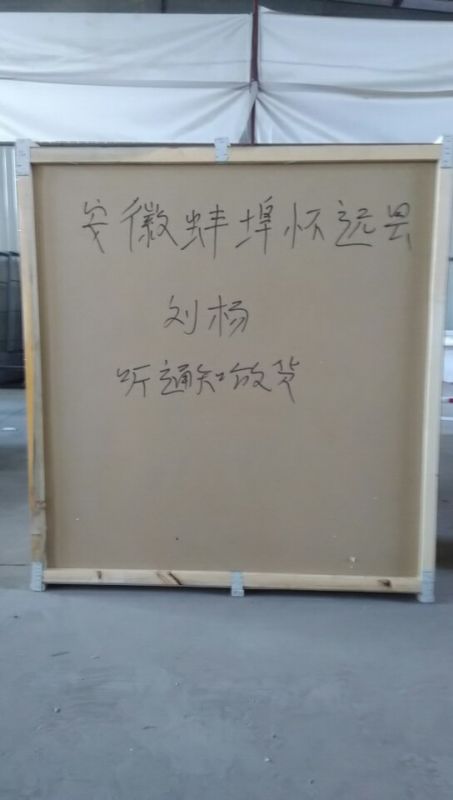 安徽蚌埠怀远县
刘杨
听通知放货